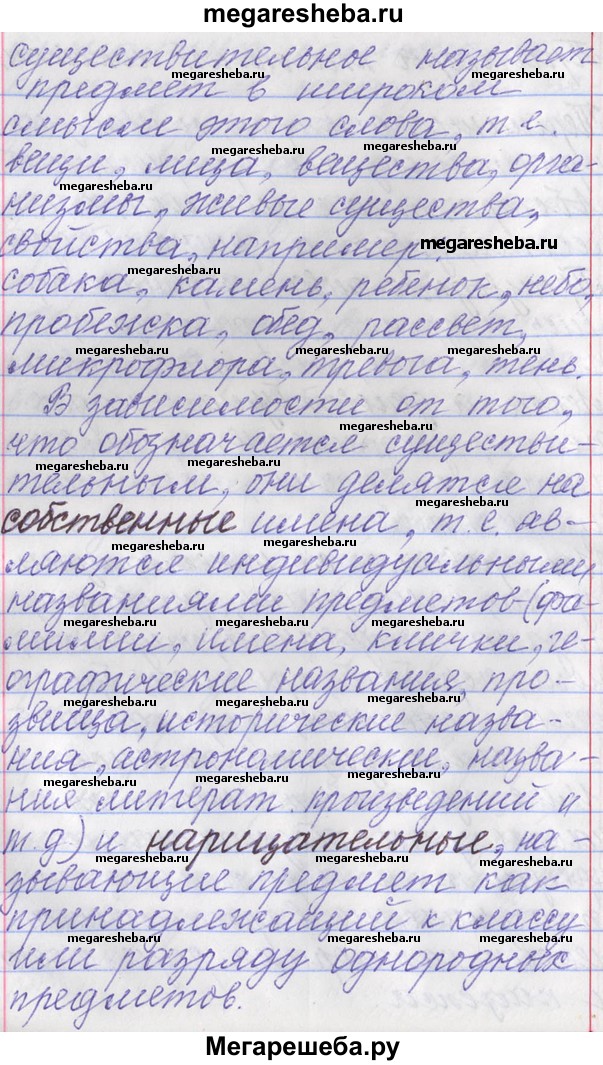 megaresheba.ru
существительное называет
предмет в широком
смысле этого слова, т.е.
вещи, лица, вещества, орга-
низмы, живые существа,
свойства, например:
собака, камень, ребенок, небо,
пробежка, обед, рассвет,
микрофлора, тревога, тень.
В зависимости от того,
что обозначается существи-
тельным, они делятся на
собственные имена, т.е. яв-
ляются индивидуальными
названиями предметов (фа-
милии, имена, клички, ге-
ографические названия, про-
звища, исторические назва-
ния, астрономические, назва-
ния литерат. произведений и
т.д.) и нарицательные, на-
зывающие предмет как
принадлежащий к классу
или разряду однородных
предметов.
Мегарешеба.ру